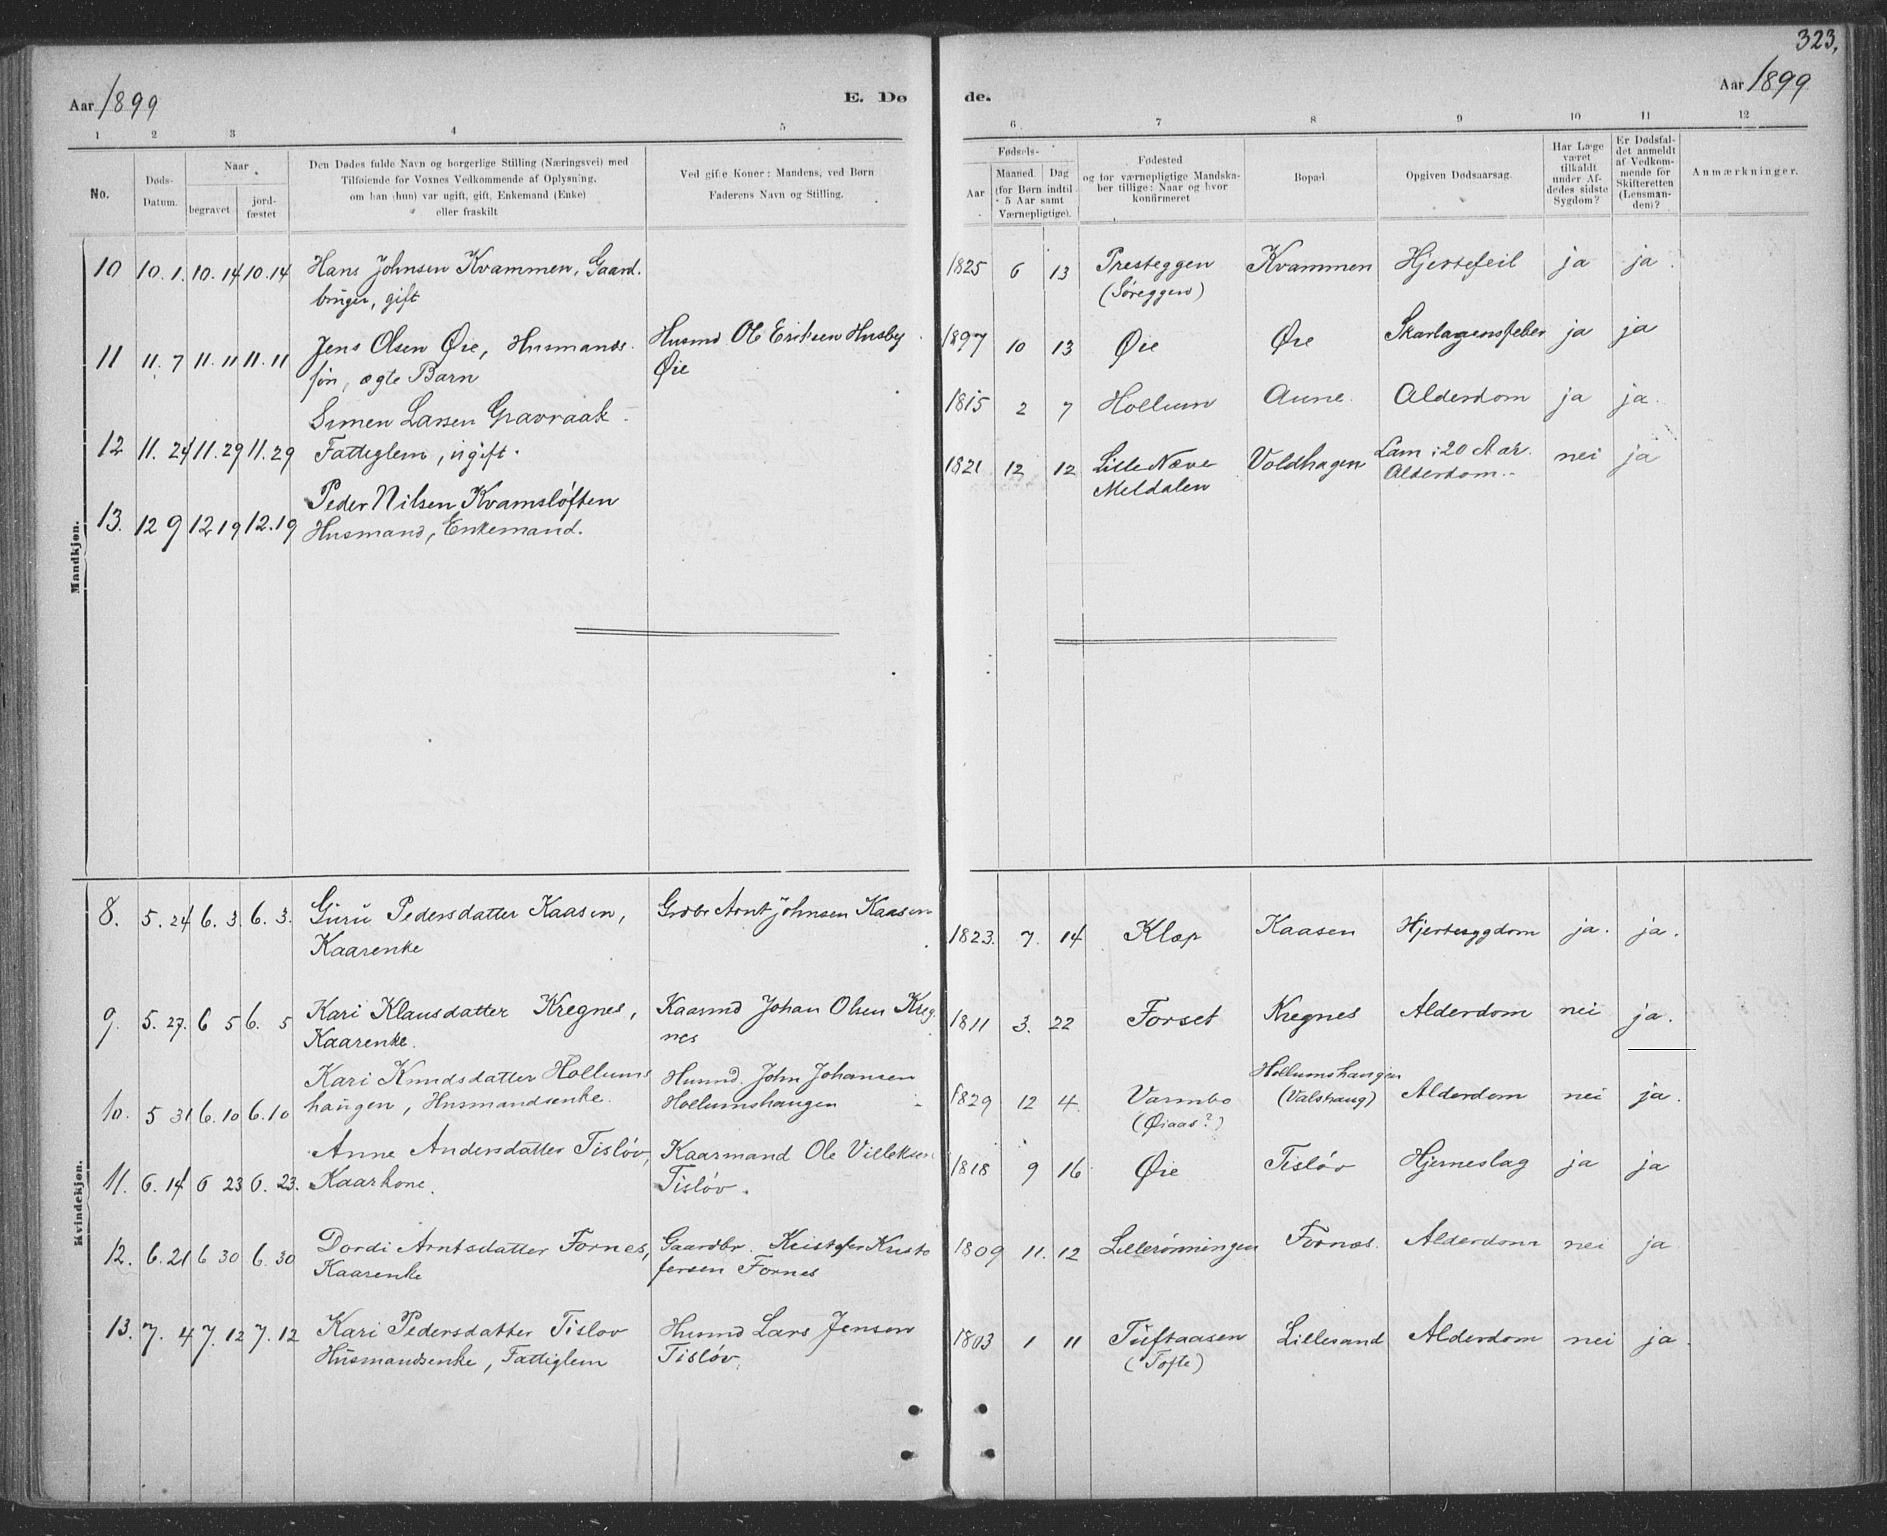 323.
Aar 1899
E. Dø
de.
Aar 1899
1 2 3 4 5
6 7 8 9 10 11 12
No.
Døds-
Datum.
Naar
begravet
jord-
fæstet
Den Dødes fulde Navn og borgerlige Stilling (Næringsvei) med
Tilføiende for Voxnes Vedkommende af Oplysning,
om han (hun) var ugift, gift, Enkemand (Enke)
eller fraskilt
Ved gifte Koner: Mandens, ved Børn
Faderens Navn og Stilling.
Fødsels-
Aar
Maaned. Dag
(for Børn indtil
5 Aar samt
Værnepligtige).
Fødested
og for værnepligtige Mandska-
ber tillige: Naar og hvor
konfirmeret
Bopæl.
Opgiven Dødsaarsag.
Har Læge
været
tilkaldt
under Af-
dødes sidste
Sygdom?
Er Dødsfal-
det anmeldt
af Vedkom-
mende for
Skifteretten
(Lensman-
den)?
Anmærkninger.
Mandkjøn.
10 10.1. 10.14 10.14 Hans Johnsen Kvammen, Gaard. 1825 6 13 Presteggen Kvammen Hjertefeil ja ja.
bruger, gift (Søreggen)
11 11.7 11.11 11.11 Jens Olsen Øie, Husmands- Husmd Ole Eriksen Husby 1897 10 13 Øie Øie Skarlagensfeber ja ja
søn, ægte Barn Øie
Simen Larsen Gravraak 1815 2 7 Hollum Aune Alderdom ja ja.
12 11.24 11.29 11.29 Fattiglem, ugift.
1821 12 12 Lille Næve Voldhagen Lam i 20 Aar. nei ja
Meldalen Alderdom.
Peder Nilsen Kvamsløften
13. 12 9 12 19 12.19 Husmand, Enkemand.
Kvindekjøn.
8. 5.24 6.3 6.3. Guru Pedersdatter Kaasen, Grdbr Arnt Johnsen Kaasen 1823. 7. 14 Klæp Kaasen Hjertesygdom ja. ja.
Kaarenke
9. 5.27. 6 5 6. 5 Kari Klausdatter Kregnes, Kaarmd Johan Olsen Kreg- 1811 3. 22 Forset Kregnes Alderdom nei ja.
Kaarenke. nes
Kari Knudsdatter Hollums Husmd. John Johansen Hollumshaugen
10. 5 31 6.10 6.10 haugen, Husmandsenke. Hollumshaugen 1829 12 4. Varmbo (Valshaug) Alderdom nei ja.
(Øiaas?)
Anne Andersdatter Tisløv, Kaarmand Ole Villeksen
11. 6.14 6 23 6. 23. Kaarkone. Tisløv. 1818 9 16 Øie Tisløv Hjerneslag ja ja
12. 6.21 6 30 6.30 Dordi Arntsdatter Fornes, Gaardbr. Kristofer Kristo 1809 11. 12 Lillerønningen Fornæs. Alderdom nei ja
Kaarenke fersen Fornes
13. 7. 4 7. 12 7. 12 Kari Pedersdatter Tisløv Husmd Lars Jensen 1803 1 11 Tuftaasen Lillesand Alderdom nei ja.
Husmandsenke, Fattiglem Tisløv. (Tofte)